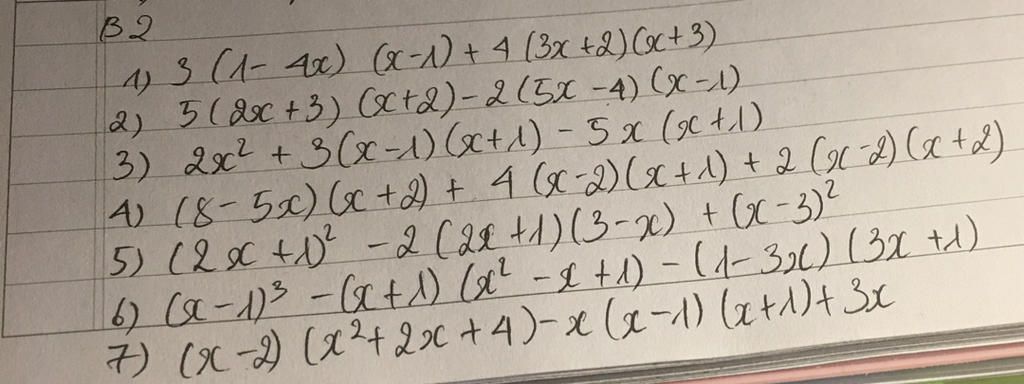 B2
1) 3 (1 - 4x) (x-1) + 4 (3x+2)(x+3)
2) 5 (2x+3) (x+2) - 2 (5x - 4) (x - 1)
3) 2x² + 3(x-1)(x+1) - 5x (x+1)
4) (8 - 5x)(x+2) + 4 (x-2)(x+1) + 2 (x-2)(x+2)
5) (2x+1)² - 2 (2x+1)(3-x) + (x-3)²
6) (x-1)³ - (x+1) (x² - x + 1) - (1-3x) (3x+1)
7) (x-2) (x²+2x+4) - x (x-1) (x+1) + 3x